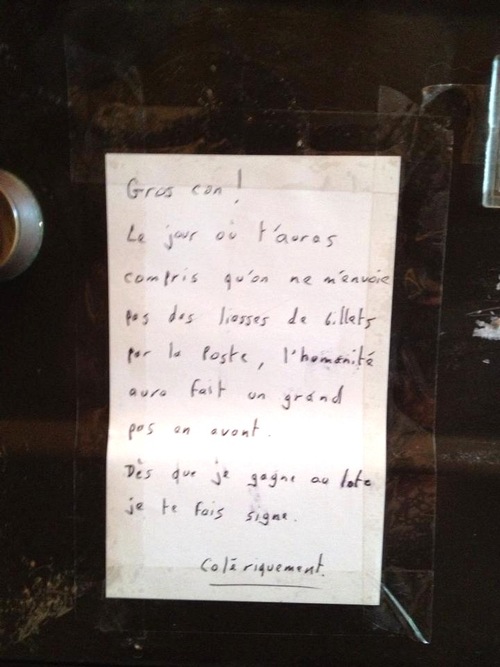 Gros con !
Le jour où t'auras
compris qu'on ne m'envoie
pas des liasses de billets
par la Poste, l'humanité
aura fait un grand
pas en avant.
Dès que je gagne au loto
je te fais signe.
Colériquement.